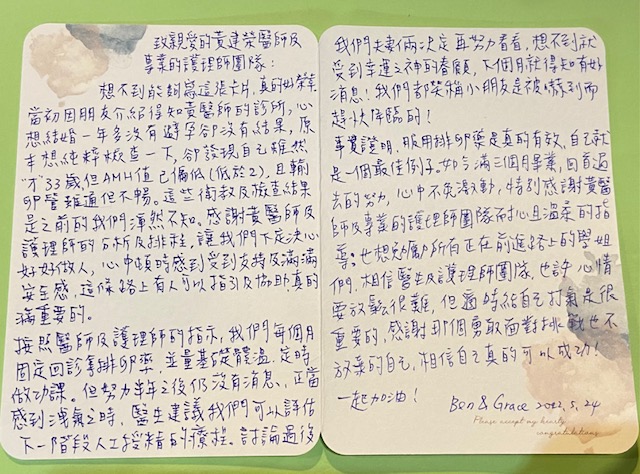 致親愛的黃建榮醫師及
專業的護理師團隊:
想不到能夠寫這張卡片,真的好榮幸
當初因朋友介紹得知黃醫師的診所,心
想結婚一年多沒有避孕卻沒有結果,原
本想純粹檢查一下,卻發現自己雖然
"才"33歲但AMH值已偏低(低於2),且輸
卵管雖通但不暢。這些衛教及檢查結果
是之前的我們渾然不知。感謝黃醫師及
護理師的分析及排程,讓我們下定決心
好好做人,心中頓時感到受到支持及滿滿
安全感,這條路上有人可以指引及協助真的
滿重要的。
按照醫師及護理師的指示,我們每個月
固定回診拿排卵藥、並量基礎體溫、定時
做功課。但努力半年之後仍沒有消息、正當
感到洩氣之時,醫生建議我們可以評估
下一階段人工授精的療程。討論過後
我們夫妻倆決定再努力看看,想不到就
受到幸運之神的眷顧,下個月就得知有好
消息!我們都笑稱小朋友是被嚇到而
趕快降臨的!
事實證明,服用排卵藥是真的有效、自己就
是一個最佳例子。如今滿三個月畢業,回首過
去的努力,心中不免激動,特別感謝黃醫
師及專業的護理師團隊耐心且溫柔的指
導;也想勉勵所有正在前進路上的學姐
們,相信醫生及護理師團隊,也許心情
要放鬆很難,但適時給自己打氣是很
重要的,感謝那個勇敢面對挑戰也不
放棄的自己,相信自己真的可以成功!
一起加油!
Ben & Grace 2022.5.24
Please accept my hearty
congratulations